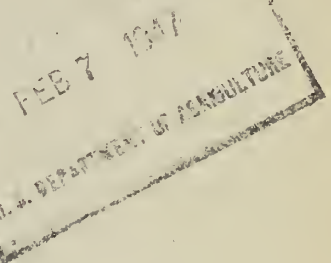 FEB 7
DEPARTMENT OF AGRICULTURE